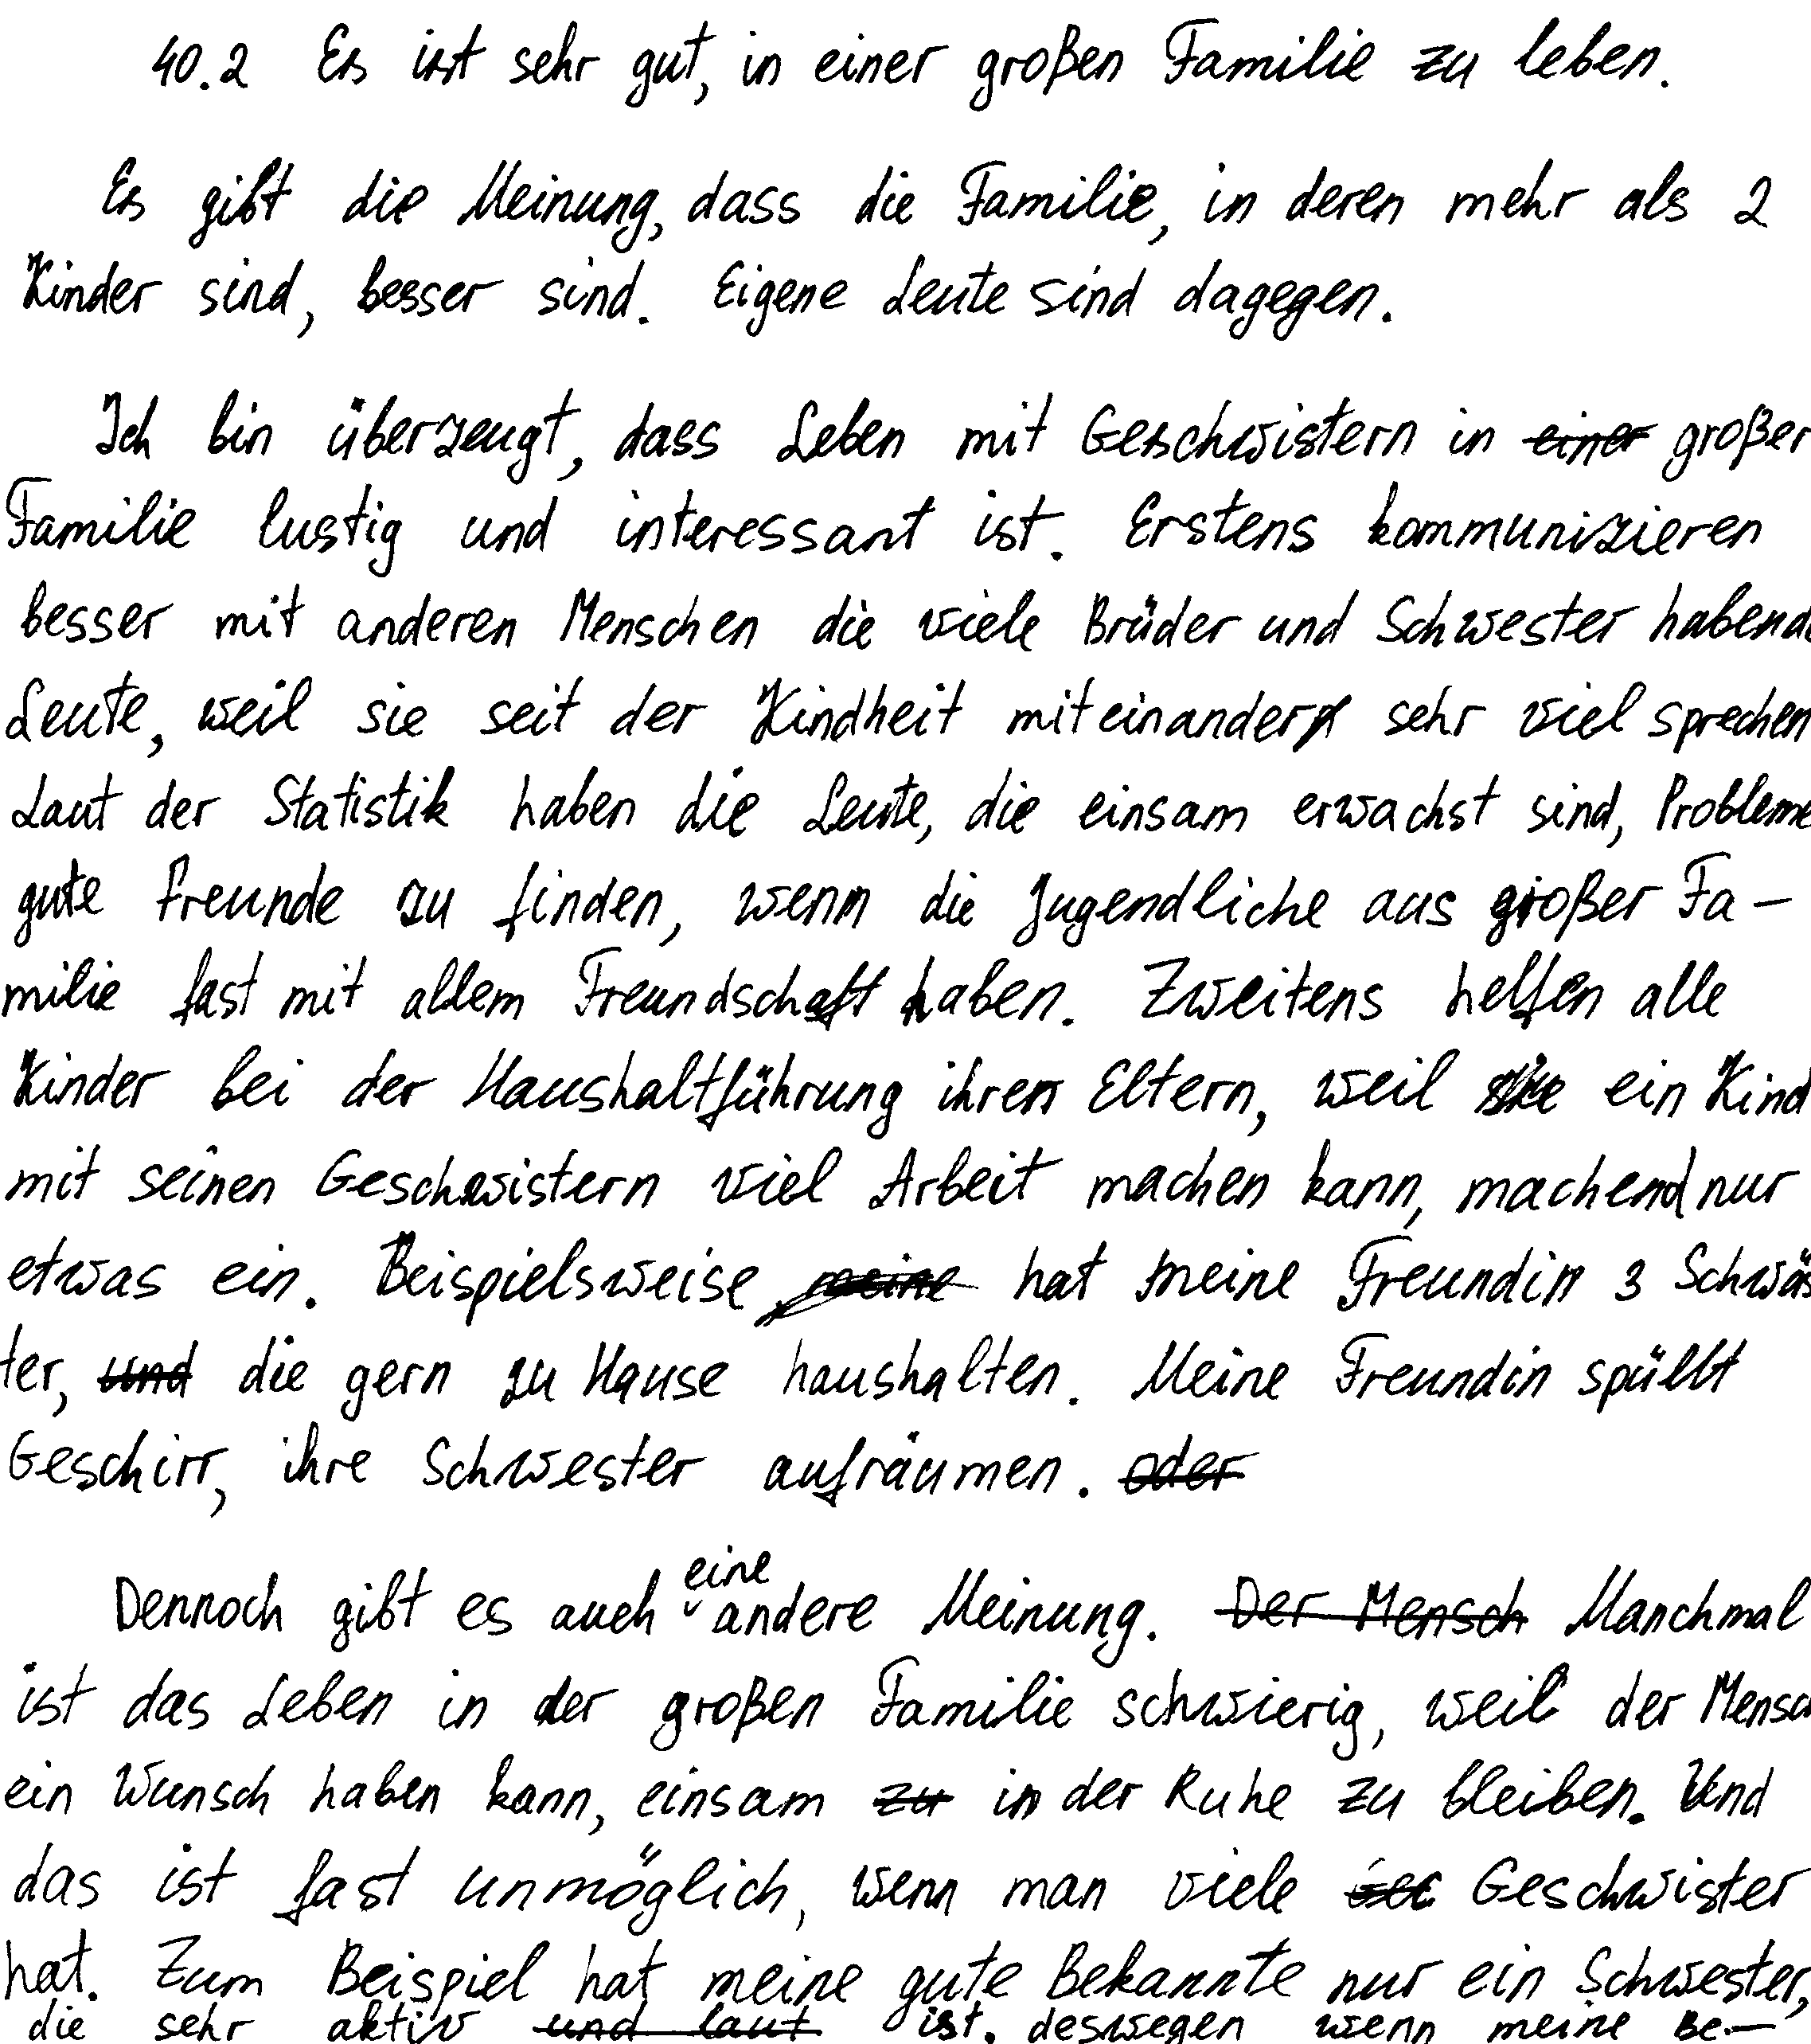 40.2 Es ist sehr gut, in einer großen Familie zu leben.
Es gibt die Meinung, dass die Familie, in deren mehr als 2
Kinder sind, besser sind. Eigene Leute sind dagegen.
Ich bin überzeugt, dass Leben mit Geschwistern in einer großer
Familie lustig und interessant ist. Erstens kommunizieren
besser mit anderen Menschen die viele Brüder und Schwester habende
Leute, weil sie seit der Kindheit miteinander sehr viel sprechen
Laut der Statistik haben die Leute, die einsam erwachst sind, Probleme
gute Freunde zu finden, wenn die Jugendliche aus großer Fa-
milie fast mit allem Freundschaft haben. Zweitens helfen alle
Kinder bei der Haushaltführung ihren Eltern, weil ein Kind
mit seinen Geschwistern viel Arbeit machen kann, machend nur
etwas ein. Beispielsweise meine hat meine Freundin 3 Schwäs
ter, und die gern zu Hause haushalten. Meine Freundin spüllt
Geschirr, ihre Schwester aufräumen. oder
Dennoch gibt es auch eine andere Meinung. Der Mensch Manchmal
ist das Leben in der großen Familie schwierig, weil der Mensch
ein Wunsch haben kann, einsam zu in der Ruhe zu bleiben. Und
das ist fast unmöglich, wenn man viele Geschwister
hat. Zum Beispiel hat meine gute Bekannte nur ein Schwester,
die sehr aktiv und laut ist, deswegen wenn meine Be-